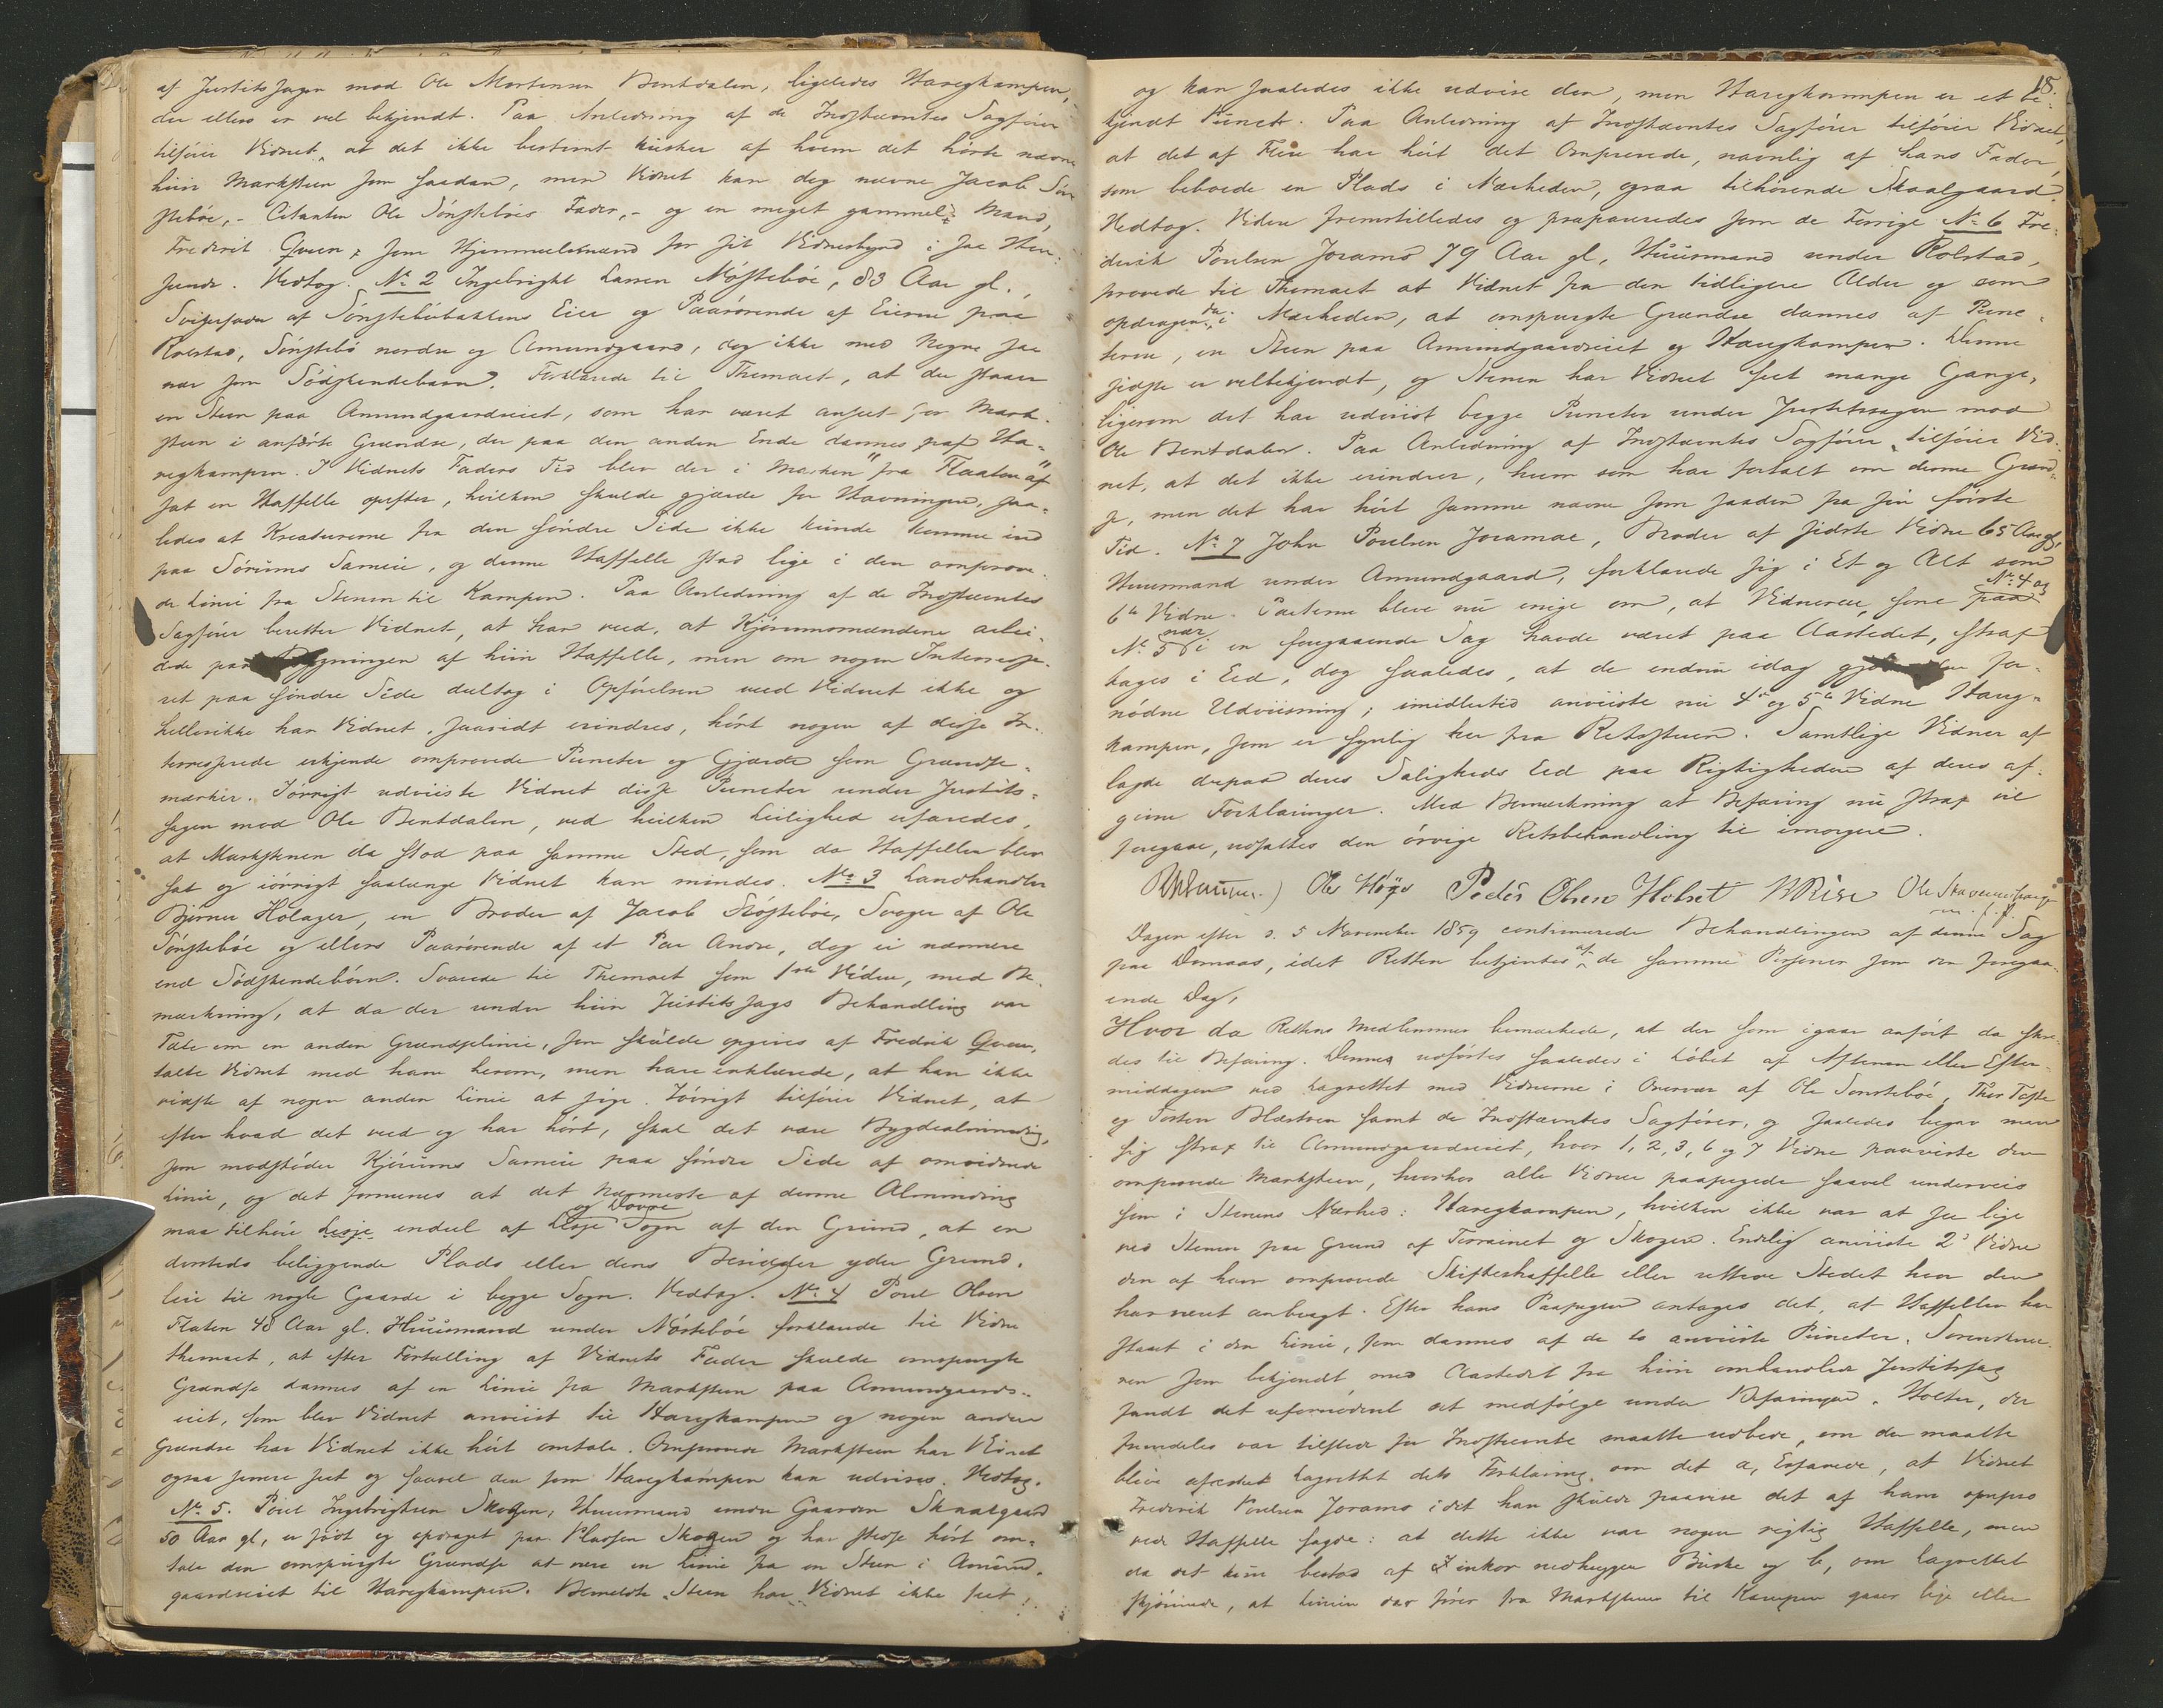 af Justitssagen mod Ole Mortensen Bentdalen, ligeledes Haregkampen,
der ellers er vel bekjendt. Paa Anledning af de Indstævntes Sagfører
tilføier Vidnet, at det ikke bestemt husker af hvem det hørte nævne
hiin Marksteen som saadan, men Vidnet kan dog nævne Jacob Søn
stebøe, - Citanten Ole Sønstebøes Fader, - og en meget gammel Mand,
Fredrik Qveen, som Hjemmelsmænd for sit Vidnesbyrd i saa Hen-
seende. Vedtog. No 2 Ingebright Larsen Nøstebøe, 83 Aar gl.,
Svigerfader af Sønstebøbakkens Eier og Paarørende af Eierne paa
Rolstad, Sønstebø nordre og Amundgaard, dog ikke med Nogen saa
nær som Sødskendebarn. Forklarede til Themaet, at der staaer
en Steen paa Amundgaardseiet, som har været anseet for Mark-
steen i anførte Grændse, der paa den anden Ende dannes af Ha-
regkampen. I Vidnets Faders Tid blev der i Marken "fra Flaaten" af
sat en Haffelle opefter, hvilken skulde gjærde for Havningen, saa-
ledes at Kreaturerne fra den søndre Side ikke kunde komme ind
paa Sørums Sameie, og denne Haffelle stod lige i den omprove-
de Linie fra Stenen til Kampen. Paa Anledning af de Indstævntes
Sagfører beretter Vidnet, at han veed, at Kjørumsmændene arbei-
dede paa Bygningen af hiin Haffelle, men om nogen Interesse-
ret paa søndre Side deeltog i Opførelsen veed Vidnet ikke og
hellerikke har Vidnet, saavidt erindres, hørt nogen af disse In-
teresserede erkjende omprovede Puncter og Gjærde som Grændse-
mærker. Iøvrigt udviiste Vidnet disse Puncter under Justits-
sagen mod Ole Bentdalen, ved hvilken Leilighed erfaredes,
at Markstenen da stod paa samme Sted, som da Haffellen blev
sat og iøvrigt saalænge Vidnet kan mindes. No 3 Landhandler
Bjørner Holager, en Broder af Jacob Nøstebøe, Svoger af Ole
Sønstebøe og ellers Paarørende af et Par Andre, dog ei nærmere
end Sødskendebørn. Svarede til Themaet som 1ste Vidne, med Be-
mærkning, at da der under hiin Justitssags Behandling var
Tale om en anden Grændselinie, som skulde opgives af Fredrik Qveen,
talte Vidnet med ham herom, men han erklærede, at han ikke
vidste af nogen anden Linie at sige. Iøvrigt tilføier Vidnet, at
efter hvad det veed og har hørt, skal det være Bygdealminding,
som modstøder Kjørums Sameie paa søndre Side af omvidnede
Linie, og det formenes at det Nærmeste af denne Alminding
og Dovre
maa tilhøre Lesje endeel af Lesje Sogn af den Grund, at en
dersteds beliggende Plads eller dens Besidder yder Grund-
leie til nogle Gaarde i begge Sogn. Vedtog. No 4 Poul Olsen
Flaten 48 Aar gl. Huusmand under Nørstebøe forklarede til Vidne
themaet, at efter Fortælling af Vidnets Fader skulde omspurgte
Grændse dannes af en Linie fra Marksteen paa Amundgaards-
eiet, som blev Vidnet anviist til Haregkampen og nogen anden
Grændse har Vidnet ikke hørt omtale. Omprovede Marksteen har Vidnet
ogsaa senere seet og saavel den som Haregkampen kan udvises. Vedtog.
No 5. Poul Ingebrigtsen Skogen, Huusmand under Gaarden Skaalgaard
50 Aar gl, er født og opdraget paa Pladsen Skogen og har stedse hørt om-
tale den omspurgte Grændse at være en Linie fra en Steen i Amund-
gaardseiet til Haregkampen. Bemeldte Steen har Vidnet ikke seet
18.
og kan saaledes ikke udvise den, men Haregkampen er et be-
kjendt Punct. Paa Anledning af Indstævntes Sagfører tilføier Vidnet,
at det af Flere har hørt det Omprovede, navnlig af hans Fader,
som beboede en Plads i Nærheden, ogsaa tilhørende Skaalgaard.
Vedtog. Videre fremstilledes og præpareredes som de Forrige No 6 Fre-
derik Poulsen Joramo 79 Aar gl, Huusmand under Rolstad,
provede til Themaet at Vidnet fra den tidligere Alder og som
opdragen i Nærheden, at omspurgte Grændse dannes af Punc-
terne, en Steen paa Amundgaardseiet og Haregkampen. Denne
sidste er velbekjendt, og Stenen har Vidnet seet mange Gange,
ligesom det har udviist begge Puncter under Justitssagen mod
Ole Bentdalen. Paa Anledning af Indstævntes Sagfører tilføier Vid-
net, at det ikke erindrer, hvem som har fortalt om denne Grænd-
se, men det har hørt samme nævne som saaden fra sin første
Tid. No 7 John Poulsen Joramoe, Broder af sidste Vidne 65 Aar gl,
Huusmand under Amundgaard, forklarede sig i Et og Alt som
6te Vidne. Parterne bleve nu enige om, at Vidnerne, som paa No 4 og
No 5 ei en foregaaende Sag havde været paa Aastedet, strax
tages i Eed, dog saaledes, at de endnu idag gjøre den for-
nødne Udviisning; imidlertid anviiste nu 4de og 5te Vidne Hareg-
kampen, som er synlig her fra Retsstuen. Samtlige Vidner af
lagde derpaa deres Saligheds Eed paa Rigtigheden af deres af-
givne Forklaringer. Med Bemærkning at Befaring nu strax vil
foregaae, udsattes den øvrige Retsbehandling til imorgen.
Ole Høye Peder Olsen Holset
Dagen efter d. 5 November 1859 continuerede Behandlingen af denne Sag
paa Domaas, idet Retten betjentes af de samme Personer som den foregaa-
ende Dag,
Hvor da Rettens Medlemmer bemærkede, at der som igaar anført da skre-
des til Befaring. Denne udførtes saaledes i Løbet af Aftenen eller Efter-
middagen ved Lagrettet med Vidnerne i Overvær af Ole Sønstebøe, Thor Tofte
og Torsten Blæstven samt de Indstævntes Sagfører, og saaledes begav man
sig strax til Amundgaardseiet, hvor 1, 2, 3, 6 og 7 Vidne paaviste den
omprovede Marksteen, hvorhos alle Vidner paapegede saavel underveis
som i Stenens Nærhed: Haregkampen, hvilken ikke var at see lige
ved Stenen paa Grund af Terrainet og Skogen. Endelig anviiste 2det Vidne
den af ham omprovede Skifteshaffelle eller rettere Stedet hvor den
har været anbragt. Efter hans Paapegen antages det, at Haffellen har
staaet i den Linie, som dannes af de to anviiste Puncter. Sorenskrive-
ren som bekjendt med Aastedet fra hiin omhandlede Justitssag
fandt det ufornødent at medfølge under Befaringen. Holter, der
fremdeles var tilstede for Indstævnte maatte udbede, om der maatte
blive afæsket Lagrettet dets Forklaring, om det a, Erfarede, at Vidnet
Frederik Poulsen Joramo idet han skulde paavise det af ham
vede Haffelle sagde: at dette ikke var nogen rigtig Haffelle, men
da det kun bestod af nedhuggen Buske og b, om Lagrettet
skjønnede, at Linien der fører fra Markstenen til Kampen gaaer lige eller